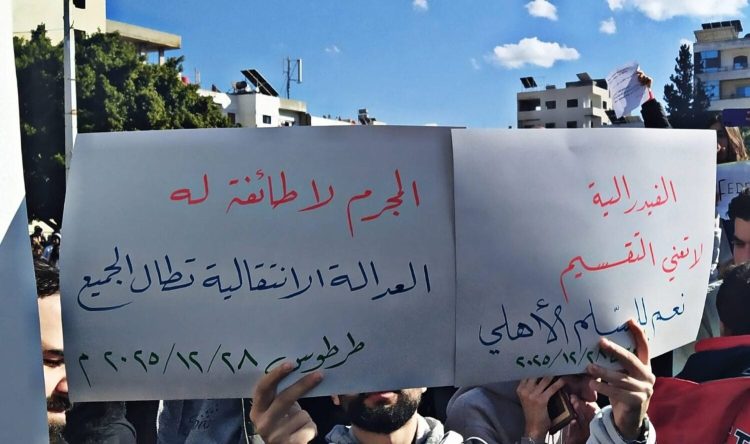 الفيدرالية
لا تعني التقسيم
نعم للسّلم الأهلي
٢٠٢٥/١٢/٢٨
المجرم لا طائفة له
العدالة الانتقالية تطال الجميع
طرطوس ٢٠٢٥/١٢/٢٨ م
FEDE